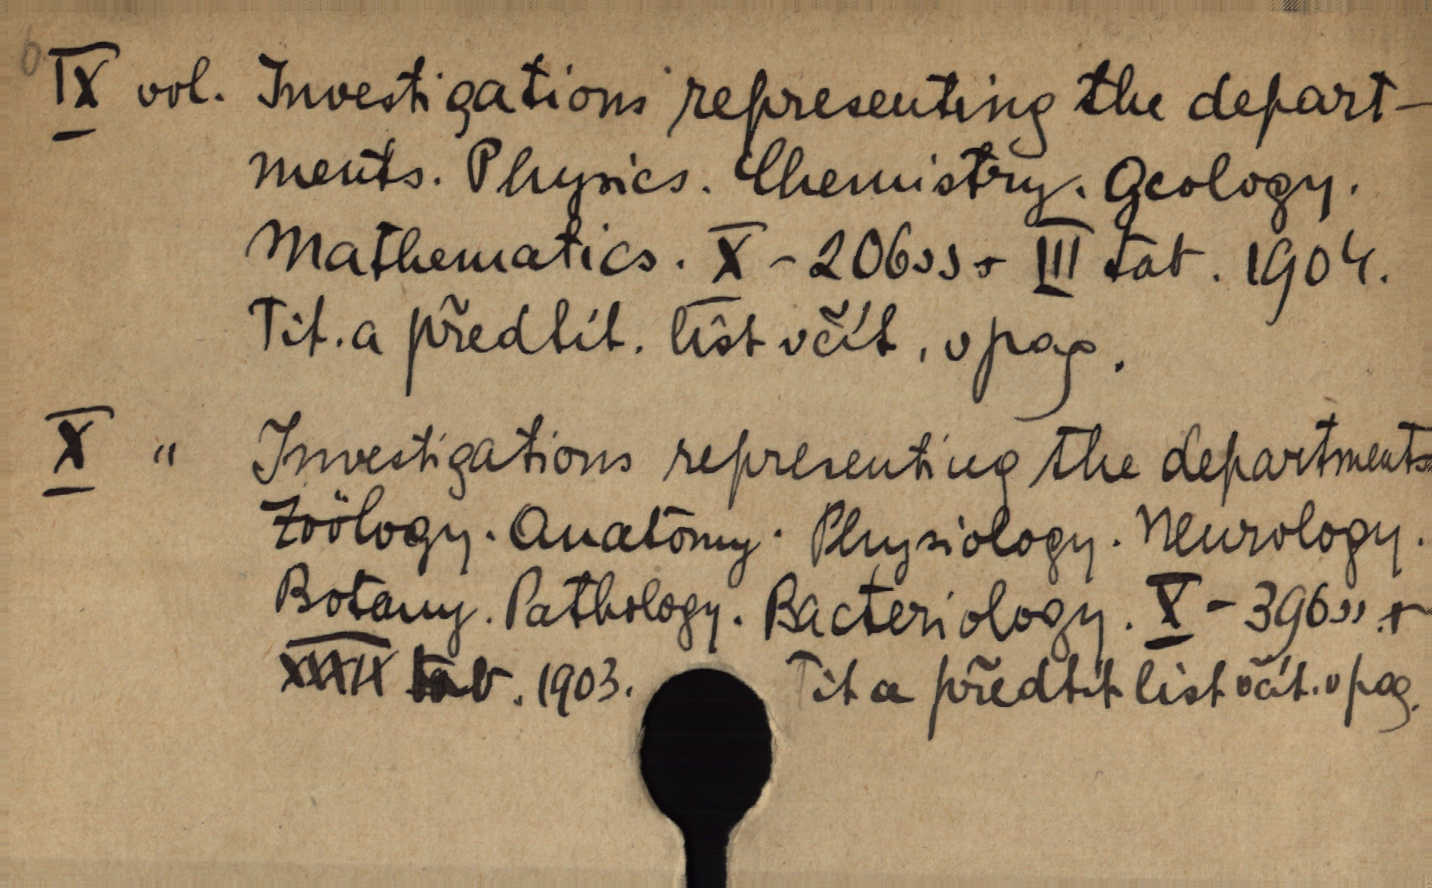 6
IX vol. Investigations representing the depart-
ments. Physics. Chemistry. Geology.
Mathematics. X - 206 ss + III tab. 1904.
Tit. a předtit. list včít. v pag.
X " Investigations representing the departments
Zoölogy. Anatomy. Physiology. Neurology.
Botany. Pathology. Bacteriology. X - 396 ss. +
tab. 1903. Tit a předtit list včít. v pag.